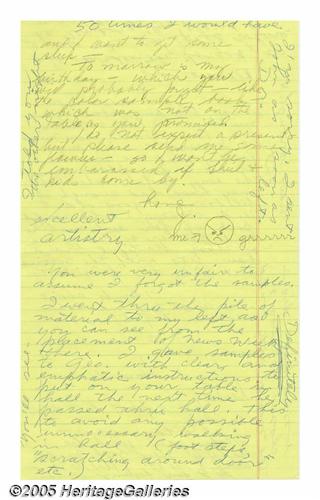 50 times I would have
and I want to get some
sleep —
To marrow is my
birthday — which you
probably forgot — like
the color sample
which was not on the
table as you promised
Do not expect a present
but please send me some
flowers — so I won't be
embarrassed if
kids come by.
Love
J.
excellent
artistry
me → grrrrrr
I'm sorry, I ate
as soon as
I left.
You were very unfair to
assume I forgot the samples.
I went through the pile of
material to my left as
you can see from the
placement of News Week
there. I gave samples
to Geo. with clear and
emphatic instructions to
put on your table in
hall the next time he
passed thru hall. This
to avoid any possible
unnecessary walking
in hall (foot steps
"scratching around door"
etc.)
©2005 HeritageGalleries